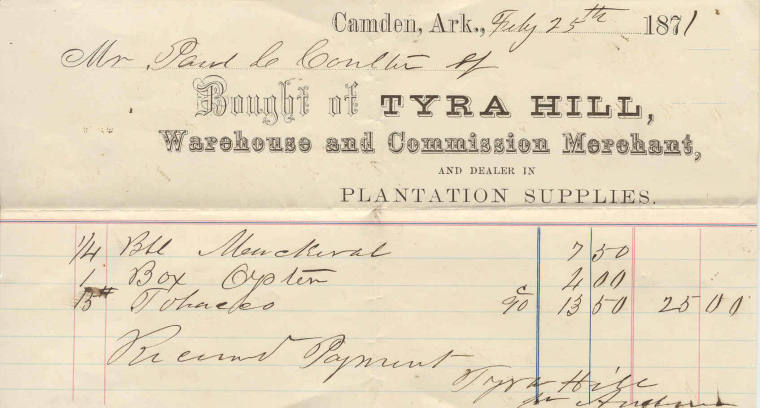 Camden, Ark., Feby 25th 1871
Mr Paul C Coulter
Bought of TYRA HILL,
Warehouse and Commission Merchant,
AND DEALER IN
PLANTATION SUPPLIES.
1/4 Bbl 7 50
1 Box 4 00
15 lb Tobacco 90c 13 50 25 00
Received Payment
Tyra Hill